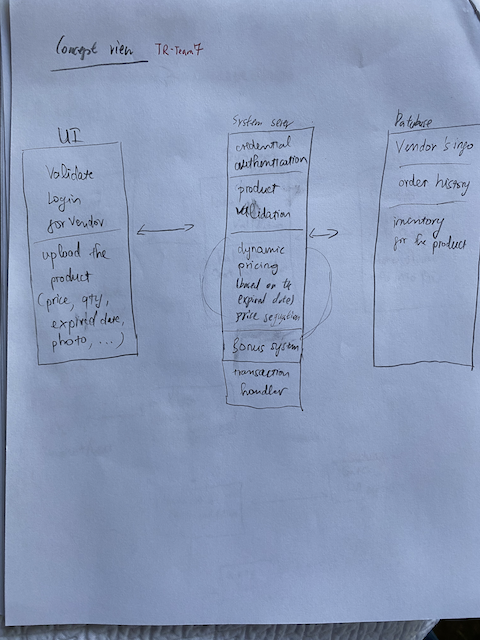 Concept view TR-Team 7
UI
Validate
Login
for vendor
upload the
product
(price, qty,
expired date,
photo, ...)
System server
credential
authentication
product
validation
dynamic
pricing
(based on the
expired date)
price
Bonus system
transaction
handler
Database
Vendor's info
order history
inventory
for the product